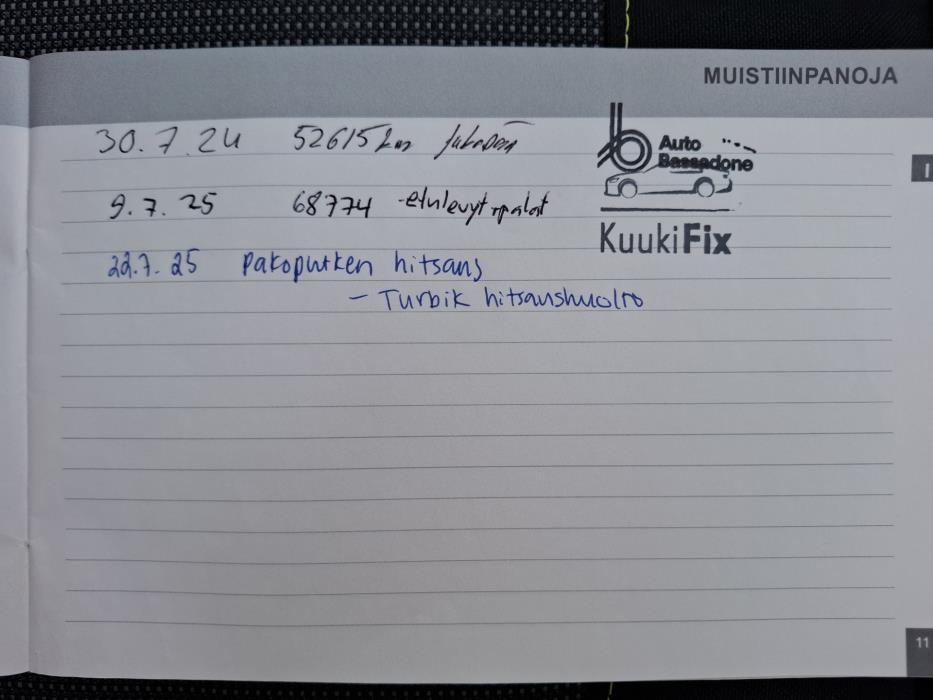 MUISTIINPANOJA
30.7.24 52615 km
Auto
Bassadone
9.7.25 68774 -etulevyt+palat
KuukiFix
22.7.25 pakoputken hitsaus
- Turbik hitsaushuolto
I
11